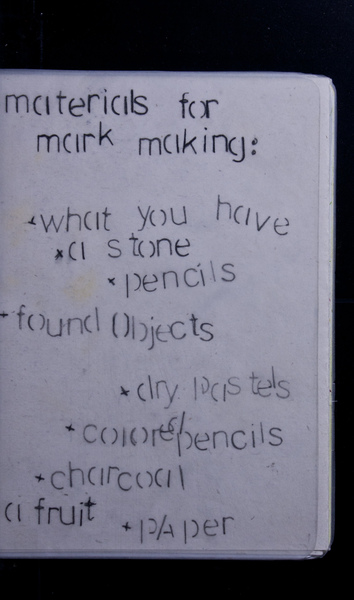 materials for
mark making:
*what you have
*a stone
*pencils
*found Objects
*dry pastels
*colored/pencils
*charcoal
a fruit
*pApER